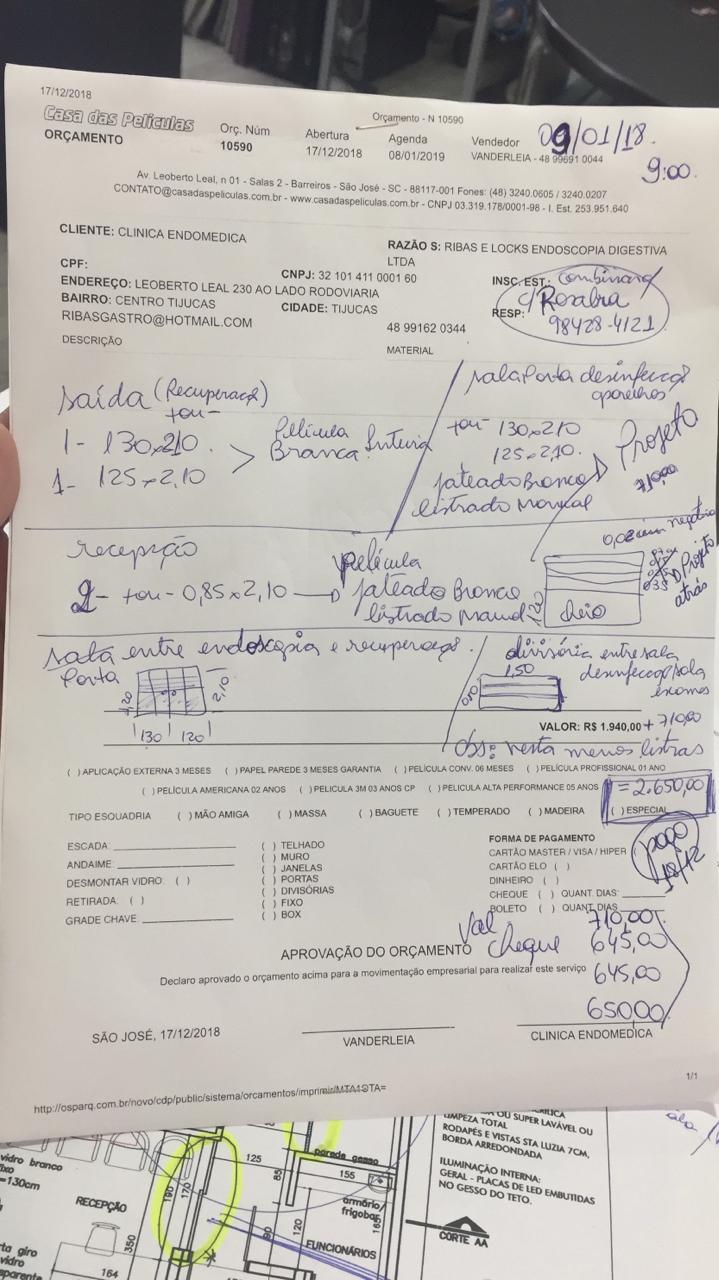 17/12/2018
Orçamento - N 10590
Casa das Películas
ORÇAMENTO
Orç. Núm
10590
Abertura
17/12/2018
Agenda
08/01/2019
Vendedor
VANDERLEIA - 48 99691 0044
09/01/18.
9:00.
Av. Leoberto Leal, n 01 - Salas 2 - Barreiros - São José - SC - 88117-001 Fones: (48) 3240.0605 / 3240.0207
CONTATO@casadaspeliculas.com.br - www.casadaspeliculas.com.br - CNPJ 03.319.178/0001-98 - I. Est. 253.951.640
CLIENTE: CLINICA ENDOMEDICA
RAZÃO S: RIBAS E LOCKS ENDOSCOPIA DIGESTIVA
LTDA
CPF:
CNPJ: 32 101 411 0001 60
INSC. EST.:
ENDEREÇO: LEOBERTO LEAL 230 AO LADO RODOVIARIA
BAIRRO: CENTRO TIJUCAS
CIDADE: TIJUCAS
RESP:
c/ Rosalra
98428-4121
RIBASGASTRO@HOTMAIL.COM
48 99162 0344
DESCRIÇÃO
MATERIAL
saída (Recuperaçã)
tou-
1- 130x210.
1- 125x2,10
Película
Branca
sala Porta desinfecçã
aparelhos
tou- 130x210
125x2,10.
jateado Branco
listrado
Projeto
710,00
recepção
2- tou- 0,85x2,10
película
jateado Branco
listrado
cheio
0,02cm
Projeto
atrás
sala entre endoscopia e recuperaçã.
Porta
2,10
130
120
divisória entre sala
desinfecçã/sala
exames
1,50
VALOR: R$ 1.940,00 + 710,00
Obs: nesta menos listras
( ) APLICAÇÃO EXTERNA 3 MESES ( ) PAPEL PAREDE 3 MESES GARANTIA ( ) PELÍCULA CONV. 06 MESES ( ) PELÍCULA PROFISSIONAL 01 ANO
( ) PELÍCULA AMERICANA 02 ANOS ( ) PELÍCULA 3M 03 ANOS CP ( ) PELICULA ALTA PERFORMANCE 05 ANOS
= 2.650,00
TIPO ESQUADRIA ( ) MÃO AMIGA ( ) MASSA ( ) BAGUETE ( ) TEMPERADO ( ) MADEIRA ( ) ESPECIAL
ESCADA:
ANDAIME:
DESMONTAR VIDRO: ( )
RETIRADA: ( )
GRADE CHAVE:
( ) TELHADO
( ) MURO
( ) JANELAS
( ) PORTAS
( ) DIVISÓRIAS
( ) FIXO
( ) BOX
FORMA DE PAGAMENTO
CARTÃO MASTER / VISA / HIPER (
CARTÃO ELO ( )
DINHEIRO ( )
CHEQUE ( ) QUANT. DIAS:
BOLETO ( ) QUANT. DIAS
pago
18/12
Val
cheque
710,00
645,00
645,00
650,00
APROVAÇÃO DO ORÇAMENTO
Declaro aprovado o orçamento acima para a movimentação empresarial para realizar este serviço
SÃO JOSÉ, 17/12/2018
VANDERLEIA
CLINICA ENDOMEDICA
1/1
http://osparq.com.br/novo/cdp/public/sistema/orcamentos/imprimir/MTA1OTA=
vidro branco
fixo
=130cm
RECEPÇÃO
190
170
125
parede gesso
155
85
armário/
frigobar
165
120
90
350
164
FUNCIONÁRIOS
OU SUPER LAVÁVEL OU
LIMPEZA TOTAL
RODAPÉS E VISTAS STA LUZIA 7CM,
BORDA ARREDONDADA
ILUMINAÇÃO INTERNA:
GERAL - PLACAS DE LED EMBUTIDAS
NO GESSO DO TETO.
CORTE AA